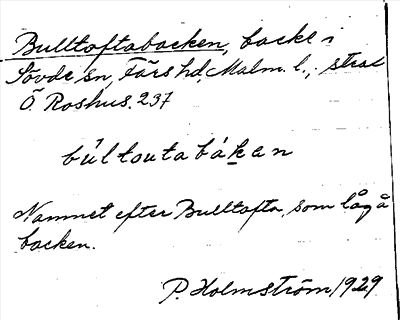 Bulltoftabacken, backe i
Sövde sn, Färs hd, Malm. l.; strax
Ö. Roshus. 237
bu̍ltoutabákan
Namnet efter Bulltofta, som låg å
backen.
P. Holmström 1929